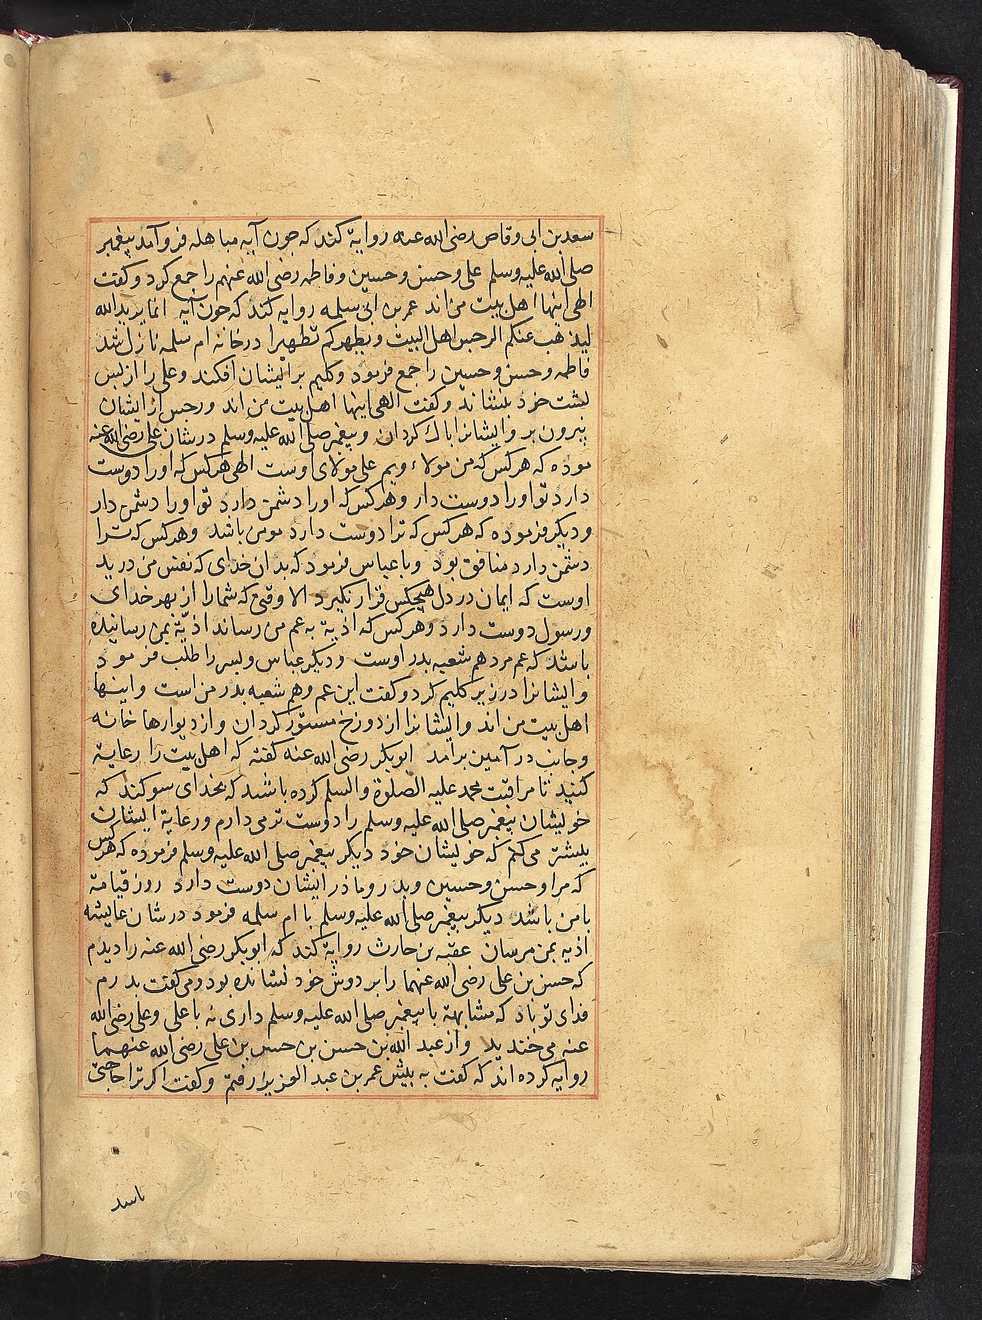 سعد بن ابی وقاص رضی الله عنه روایة کنند که چون آیه مباهله فرو آمد پیغمبر
صلی الله علیه وسلم علی وحسن وحسین وفاطمه رضی الله عنهم را جمع کرد وکفت
الهی اینها اهل بیت من اند عمر بن ابی سلمه روایه کند که چون آیه انما یرید الله
لیذهب عنکم الرجس اهل البیت ویطهرکم تطهیرا در خانه ام سلمه نازل شد
فاطمه وحسن وحسین را جمع فرمود وکلیم بر ایشان افکند وعلی را از پس
پشت خود بنشاند وکفت الهی اینها اهل بیت من اند ورجس از ایشان
بیرون بر وایشانرا پاک کردان وپیغمبر صلی الله علیه وسلم در شان علی رضی الله عنه
موده که هر کس که من مولاء ویم علی مولای اوست الهی هر کس که اورا دوست
دارد تو اورا دوست دار وهر کس که اورا دشمن دارد تو اورا دشمن دار
ودیکر فرموده که هر کس که ترا دوست دارد مومن باشد وهر کس که ترا
دشمن دارد منافق بود وبا عباس فرمود که بدان خدای که نفس من در ید
اوست که ایمان در دل هیچکس قرار نکیرد الا وقتی که شما را از بهر خدای
ورسول دوست دارد وهر کس که اذیة به عم من رساند اذیة بمن رسانیده
باشد که عم مرد هم شعبه پدر اوست ودیکر عباس وپسر را طلب فرمود
وایشانرا در زیر کلیم کرد وکفت این عم وهم شعبه پدر من است واینها
اهل بیت من اند وایشانرا از دوزخ مستور کردان واز دیوارها خانه
وجانب در آمین برآمد ابوبکر رضی الله عنه کفته که اهل بیت را رعایة
کنید تا مراقبت محمد علیه الصلوة والسلم کرده باشید که بخدای سوکند که
خویشان پیغمبر صلی الله علیه وسلم را دوست تر می دارم ورعایة ایشان
بیشتر می کنم که خویشان خود دیکر پیغمبر صلی الله علیه وسلم فرموده که هر کس
که مرا وحسن وحسین وپدر وماذر ایشان دوست دارد روز قیامة
با من باشد دیکر پیغمبر صلی الله علیه وسلم با ام سلمه فرمود در شان عایشه
اذیه بمن مرسان عقبه بن حارث روایة کند که ابوبکر رضی الله عنه را دیدم
که حسن بن علی رضی الله عنهما را بر دوش خود نشانده بود ومی کفت پدرم
فدای تو باد که مشابهة با پیغمبر صلی الله علیه وسلم داری نه با علی وعلی رضی الله
عنه می خندید واز عبد الله بن حسن بن حسن بن علی رضی الله عنهما
روایه کرده اند که کفت به پیش عمر بن عبد العزیز رفتم وکفت اکر ترا حاجتی
باشد